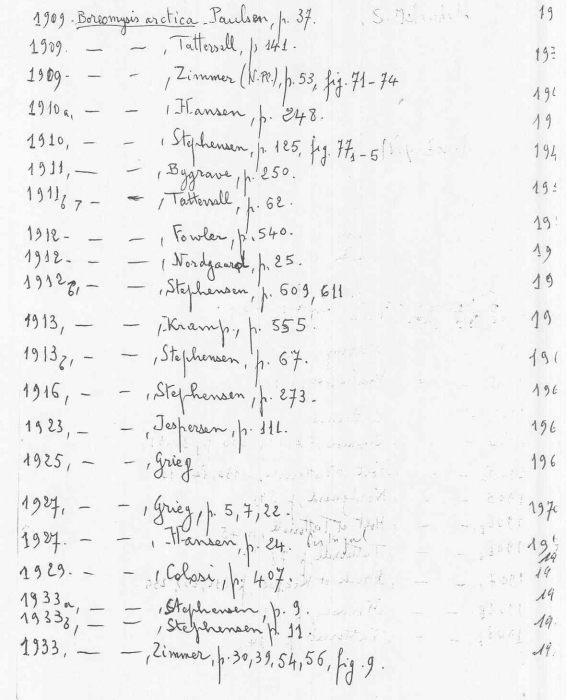 1909. Boreomysis arctica. Paulsen, p. 37.
1909. — — , Tattersall, p 141.
1909 — — , Zimmer (N.Pl.), p. 53, fig. 71-74
1910a, — — , Hansen, p. 248.
1910, — — , Stephensen, p. 125, fig. 77 1-5
1911, — — , Byggrave, p. 250.
1911 — , Tattersall, p. 62.
1912 - — — , Fowler, p. 540.
1912. — — , Nordgaard, p. 25.
1912b, — — , Stephensen, p. 609, 611
1913, — — , Kramp., p. 555.
1913b, — — , Stephensen, p. 67.
1916, — — , Stephensen, p. 273.
1923, — — , Jespersen, p. 111.
1925, — — , Grieg
1927, — — , Grieg, p. 5, 7, 22.
1927. — — , Hansen, p. 24.
1929. — — , Colosi, p. 407.
1933a, — — , Stephensen, p. 9.
1933b, — — , Stephensen p. 11.
1933, — — , Zimmer, p. 30, 39, 54, 56, fig. 9.